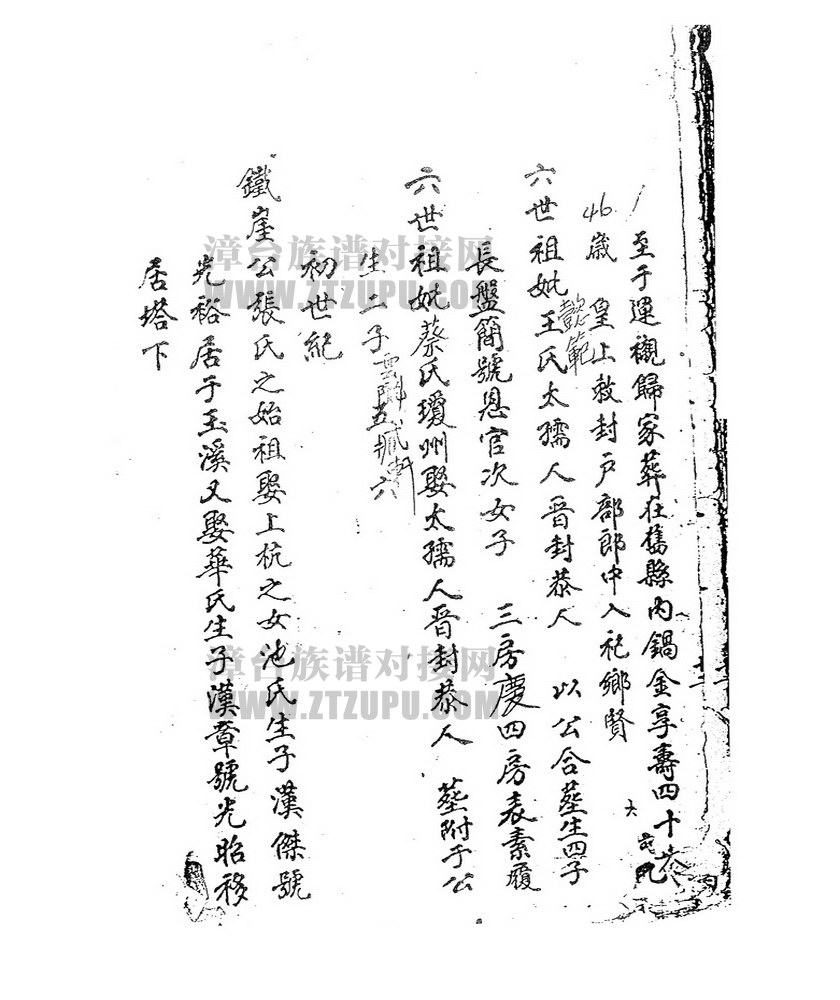 至于運襯歸家葬在舊縣內鍋金享壽四十叁
46歲 皇上敕封戶部郎中入祀鄉賢
六世祖妣王氏太孺人晋封恭人 以公合葬生四子
懿範
長盤簡號恩官次女子 三房慶四房表素履
六世祖妣蔡氏瓊州娶太孺人晋封恭人 葬附于公
生二子雲 五 六
初世紀
鐵崖公張氏之始祖娶上杭之女池氏生子漢傑號
光裕居于玉溪又娶華氏生子漢章號光昭移
居塔下
漳台族谱对接网
WWW.ZTZUPU.COM
漳台族谱对接网
WWW.ZTZUPU.COM